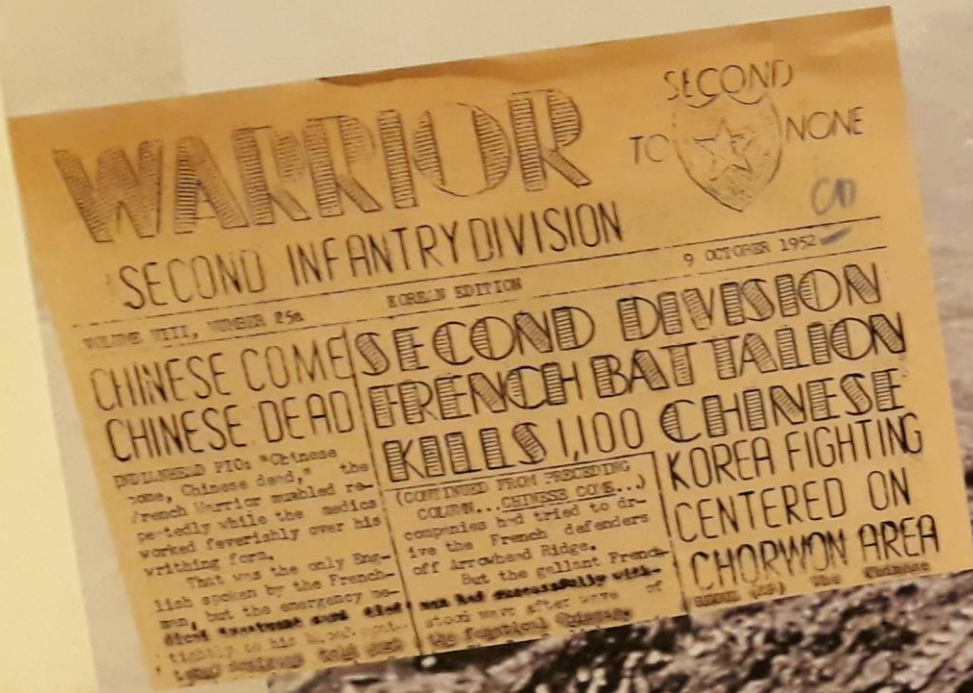 WARRIOR
SECOND
TO NONE
CD
SECOND INFANTRY DIVISION
VOLUME VIII, NUMBER 25a
KOREAN EDITION
9 OCTOBER 1952
CHINESE COME
CHINESE DEAD
INDIANHEAD PIO: "Chinese
come, Chinese dead," the
French Warrior mumbled re-
peatedly while the medics
worked feverishly over his
writhing form.
That was the only Eng-
lish spoken by the French-
man, but the emergency me-
dical treatment
tightly to his
SECOND DIVISION
FRENCH BATTALION
KILLS 1,100 CHINESE
(CONTINUED FROM PRECEDING
COLUMN...CHINESE COME...)
companies had tried to dr-
ive the French defenders
off Arrowhead Ridge.
But the gallant French-
men had successfully with-
stood wave after wave of
the fanatical Chinese.
KOREA FIGHTING
CENTERED ON
CHORWON AREA
SEOUL (AP) The Chinese